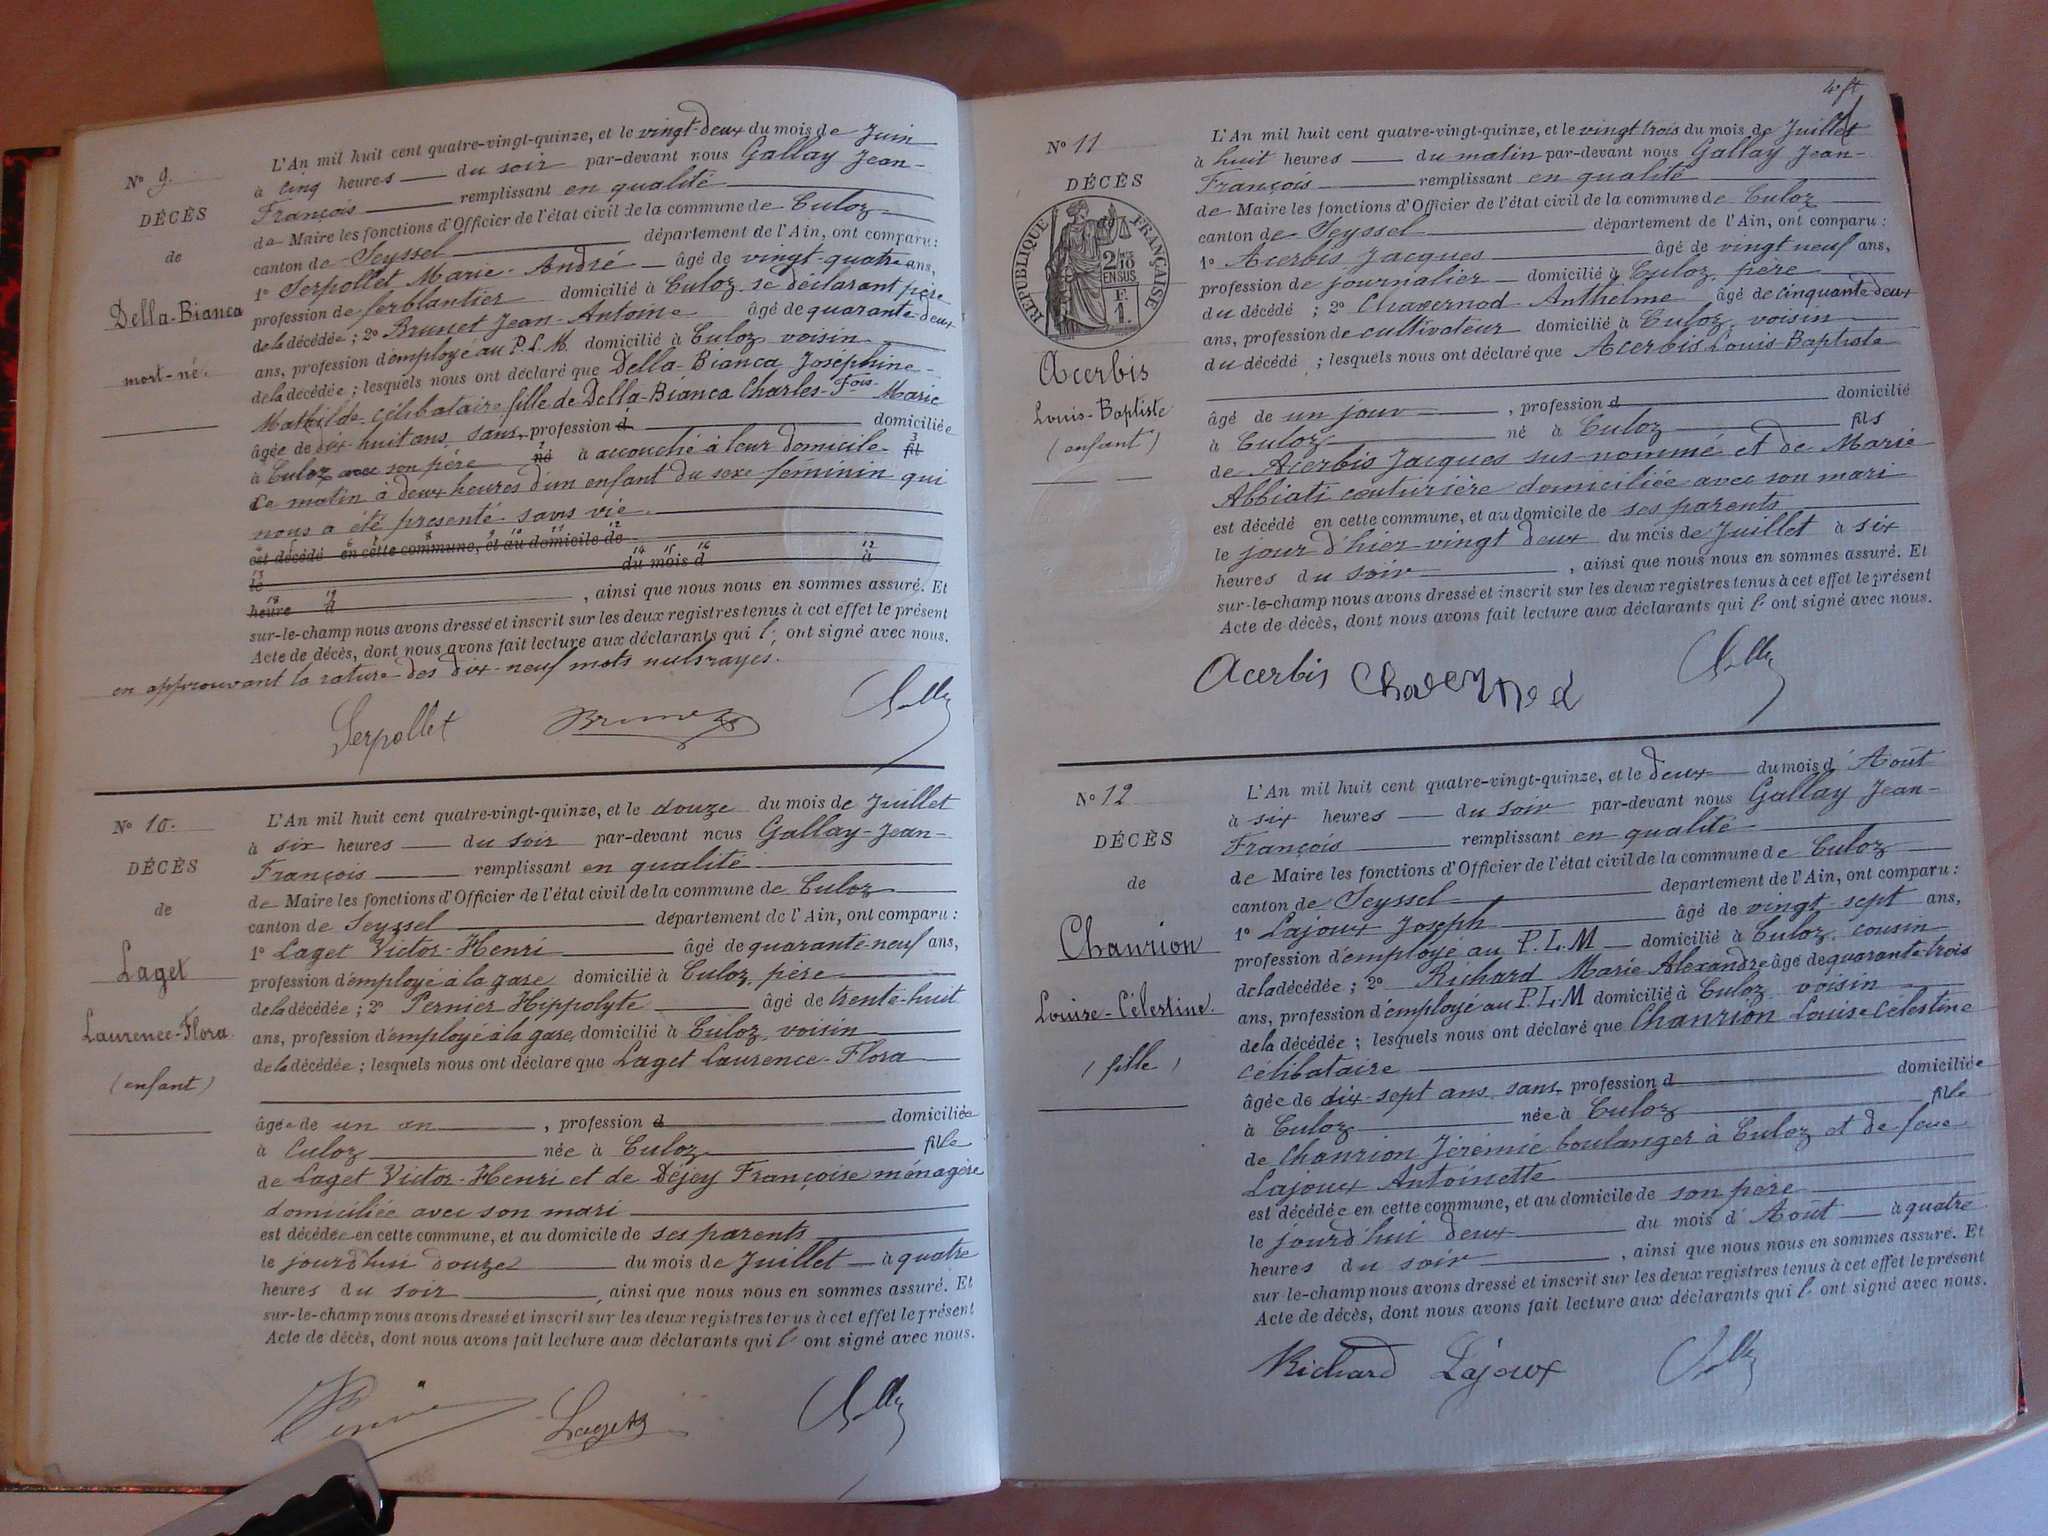 N° 9.
DÉCÈS
de
Della-Bianca
mort-né.
L'An mil huit cent quatre-vingt-quinze, et le vingt-deux du mois de Juin
à cinq heures du soir par-devant nous Gallay Jean-
François remplissant en qualité
de Maire les fonctions d'Officier de l'état civil de la commune de Culoz
canton de Seyssel département de l'Ain, ont comparu :
1° Serpollet Marie-André âgé de vingt-quatre ans,
profession de ferblantier domicilié à Culoz se déclarant père
de la décédée ; 2° Brunet Jean-Antoine âgé de quarante-deux
ans, profession d'employé au P.L.M. domicilié à Culoz voisin
de la décédée ; lesquels nous ont déclaré que Della-Bianca Josephine-
Mathilde célibataire fille de Della-Bianca Charles-Fois-Marie
âgée de dix-huit ans, sans profession d domiciliée
à Culoz avec son père né à accouché à leur domicile fil
ce matin à deux heures d'un enfant du sexe feminin qui
nous a été presenté sans vie.
est décédé en cette commune, et au domicile de
le du mois d à
heure d , ainsi que nous nous en sommes assuré. Et
sur-le-champ nous avons dressé et inscrit sur les deux registres tenus à cet effet le présent
Acte de décès, dont nous avons fait lecture aux déclarants qui l' ont signé avec nous.
en approuvant la rature des dix-neuf mots nuls rayés.
Serpollet Brunet
N° 10.
DÉCÈS
de
Laget
Laurence-Flora
(enfant)
L'An mil huit cent quatre-vingt-quinze, et le douze du mois de Juillet
à six heures du soir par-devant nous Gallay-Jean-
François remplissant en qualité
de Maire les fonctions d'Officier de l'état civil de la commune de Culoz
canton de Seyssel département de l'Ain, ont comparu :
1° Laget Victor-Henri âgé de quarante-neuf ans,
profession d'employé à la gare domicilié à Culoz, père
de la décédée ; 2° Pernier Hippolyte âgé de trente-huit
ans, profession d'employé à la gare, domicilié à Culoz, voisin
de la décédée ; lesquels nous ont déclaré que Laget Laurence-Flora
âgée de un an , profession d domiciliée
à Culoz née à Culoz fille
de Laget Victor-Henri et de Déjey Françoise ménagère
domiciliée avec son mari
est décédée en cette commune, et au domicile de ses parents
le jourd'hui douze du mois de Juillet à quatre
heures du soir , ainsi que nous nous en sommes assuré. Et
sur-le-champ nous avons dressé et inscrit sur les deux registres tenus à cet effet le présent
Acte de décès, dont nous avons fait lecture aux déclarants qui l' ont signé avec nous.
Laget
N° 11
DÉCÈS
RÉPUBLIQUE FRANÇAISE
2/10 EN SUS
F. 1.
Acerbis
Louis-Baptiste
(enfant)
L'An mil huit cent quatre-vingt-quinze, et le vingt trois du mois de Juillet
à huit heures du matin par-devant nous Gallay Jean-
François remplissant en qualité
de Maire les fonctions d'Officier de l'état civil de la commune de Culoz
canton de Seyssel département de l'Ain, ont comparu :
1° Acerbis Jacques âgé de vingt neuf ans,
profession de journalier domicilié à Culoz, père
du décédé ; 2° Chavernod Anthelme âgé de cinquante-deux
ans, profession de cultivateur domicilié à Culoz, voisin
du décédé ; lesquels nous ont déclaré que Acerbis Louis-Baptiste
âgé de un jour , profession d domicilié
à Culoz né à Culoz fils
de Acerbis Jacques sus-nommé et de Marie
Abbiati couturière domiciliée avec son mari
est décédé en cette commune, et au domicile de ses parents
le jour d'hier vingt deux du mois de Juillet à six
heures du soir , ainsi que nous nous en sommes assuré. Et
sur-le-champ nous avons dressé et inscrit sur les deux registres tenus à cet effet le présent
Acte de décès, dont nous avons fait lecture aux déclarants qui l' ont signé avec nous.
Acerbis Chavernod
N° 12
DÉCÈS
de
Chanrion
Louise-Célestine.
(fille)
L'An mil huit cent quatre-vingt-quinze, et le deux du mois d'Août
à six heures du soir par-devant nous Gallay Jean-
François remplissant en qualité
de Maire les fonctions d'Officier de l'état civil de la commune de Culoz
canton de Seyssel département de l'Ain, ont comparu :
1° Lajoux Joseph âgé de vingt-sept ans,
profession d'employé au P.L.M domicilié à Culoz, cousin
de la décédée ; 2° Richard Marie Alexandre âgé de quarante-trois
ans, profession d'employé au P.L.M domicilié à Culoz voisin
de la décédée ; lesquels nous ont déclaré que Chanrion Louise Célestine
célibataire
âgée de dix-sept ans, sans profession d domiciliée
à Culoz née à Culoz fille
de Chanrion Jérémie boulanger à Culoz et de feue
Lajoux Antoinette
est décédée en cette commune, et au domicile de son père
le jourd'hui deux du mois d'Août à quatre
heures du soir , ainsi que nous nous en sommes assuré. Et
sur-le-champ nous avons dressé et inscrit sur les deux registres tenus à cet effet le présent
Acte de décès, dont nous avons fait lecture aux déclarants qui l' ont signé avec nous.
Richard Lajoux